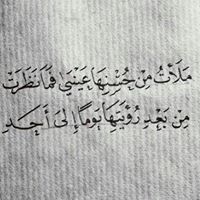 مَلَأْتُ مِنْ حُسْنِهَا عَيْنِي فَمَا نَظَرَتْ
مِنْ بَعْدِ رُؤْيَتِهَا يَوْمًا إِلَى أَحَدِ